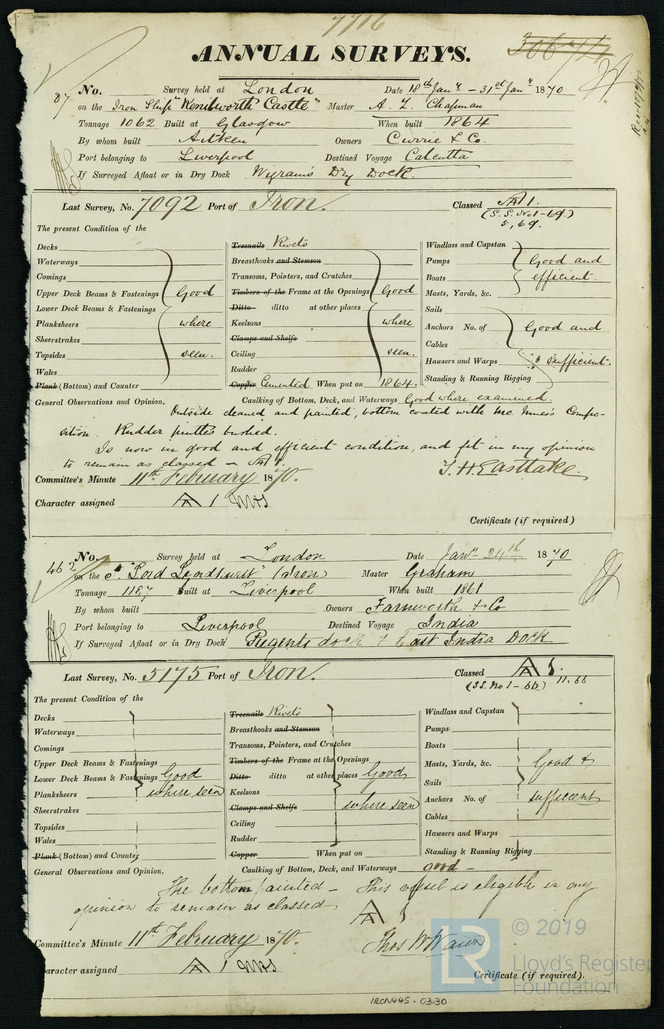 7716
ANNUAL SURVEYS.
87 No. Survey held at London Date 18th Jany - 31st Jany 1870
on the Iron Ship "Kenilworth Castle" Master A. L. Chapman
Tonnage 1062 Built at Glasgow When built 1864
By whom built Aitken Owners Currie & Co.
Port belonging to Liverpool Destined Voyage Calcutta
If Surveyed Afloat or in Dry Dock Wigrams Dry Dock.
Last Survey, No. 7092 Port of Iron. Classed A 1.
(S.S. No 1-69)
5,69.
The present Condition of the
Decks
Waterways
Comings
Upper Deck Beams & Fastenings Good
Lower Deck Beams & Fastenings
Planksheers where
Sheerstrakes
Topsides seen.
Wales
Plank (Bottom) and Counter
Treenails Rivets
Breasthooks and Stemson
Transoms, Pointers, and Crutches
Timbers of the Frame at the Openings Good
Ditto ditto at other places
Keelsons where
Clamps and Shelfs
Ceiling seen.
Rudder
Copper Cemented. When put on 1864.
Windlass and Capstan
Pumps Good and
Boats efficient.
Masts, Yards, &c.
Sails
Anchors No. of Good and
Cables
Hawsers and Warps sufficient.
Standing & Running Rigging
General Observations and Opinion, Caulking of Bottom, Deck, and Waterways Good where examined
Outside cleaned and painted, bottom coated with Mc Innes's Compo-
sition. Rudder pintles bushed.
Is now in good and efficient condition, and fit in my opinion
to remain as classed - A 1.
T. H. Eastlake.
Committee's Minute 11th February 1870.
Character assigned A 1
Certificate (if required)
462 No. Survey held at London Date Jany 24th 1870
on the S. "Lord Lyndhurst" (Iron) Master Graham
Tonnage 1187 Built at Liverpool When built 1861
By whom built Owners Farnworth & Co
Port belonging to Liverpool Destined Voyage India
If Surveyed Afloat or in Dry Dock Regents dock & East India Dock
Last Survey, No. 5175 Port of Iron. Classed A 1.
(SS. No 1-66) 11.66
The present Condition of the
Decks
Waterways
Comings
Upper Deck Beams & Fastenings
Lower Deck Beams & Fastenings Good
Planksheers where seen
Sheerstrakes
Topsides
Wales
Plank (Bottom) and Counter
Treenails Rivets
Breasthooks and Stemson
Transoms, Pointers, and Crutches
Timbers of the Frame at the Openings
Ditto ditto at other places Good
Keelsons
Clamps and Shelfs where seen
Ceiling
Rudder
Copper When put on
Windlass and Capstan
Pumps
Boats
Masts, Yards, &c. Good &
Sails
Anchors No. of sufficient
Cables
Hawsers and Warps
Standing & Running Rigging
General Observations and Opinion, Caulking of Bottom, Deck, and Waterways good -
The bottom painted - This vessel is eligible in my
opinion to remain as classed A 1
Committee's Minute 11th February 1870.
Character assigned A 1
Certificate (if required).
IRON445-0330
LR
© 2019
Lloyd's Register
Foundation